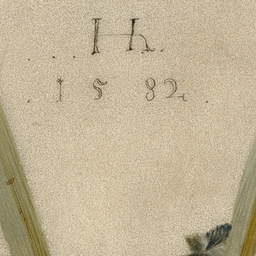 Hh.
. 1 5 82 .